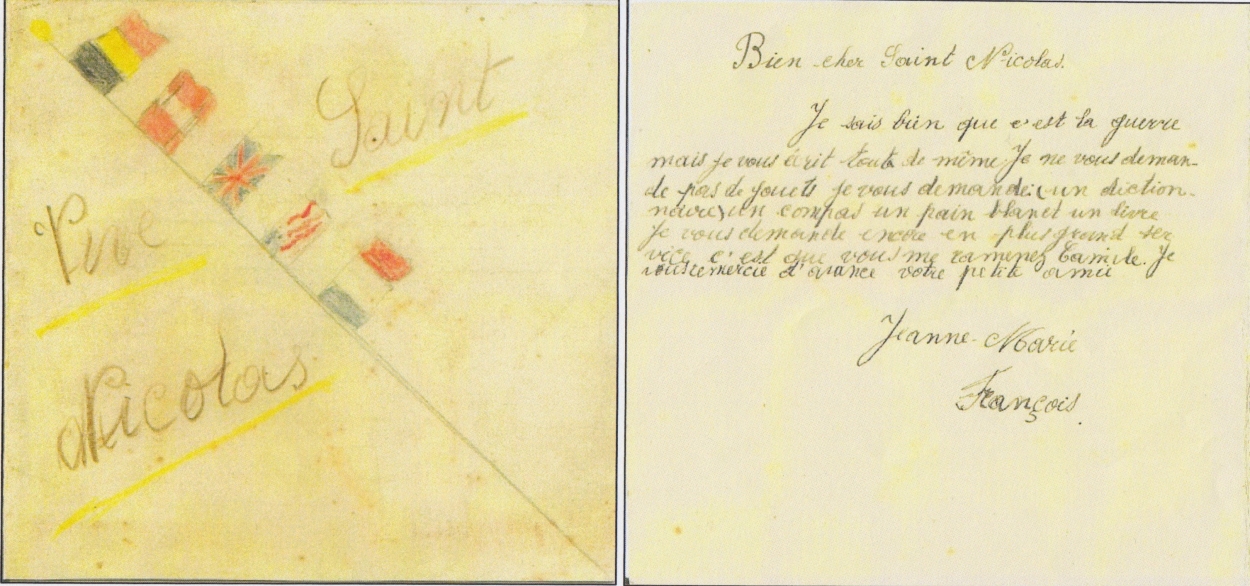 Vive
Saint
Nicolas
Bien cher Saint Nicolas.
Je sais bien que c'est la guerre
mais je vous écrit tout de même. Je ne vous deman-
de pas de jouets je vous demande: (un diction-
naire) un compas un pain blanc et un livre
Je vous demande encore en plus grand ser
vice c'est que vous me ramenez Camile. Je
vous remercie d'avance votre petite amie
Jeanne-Marie
François.